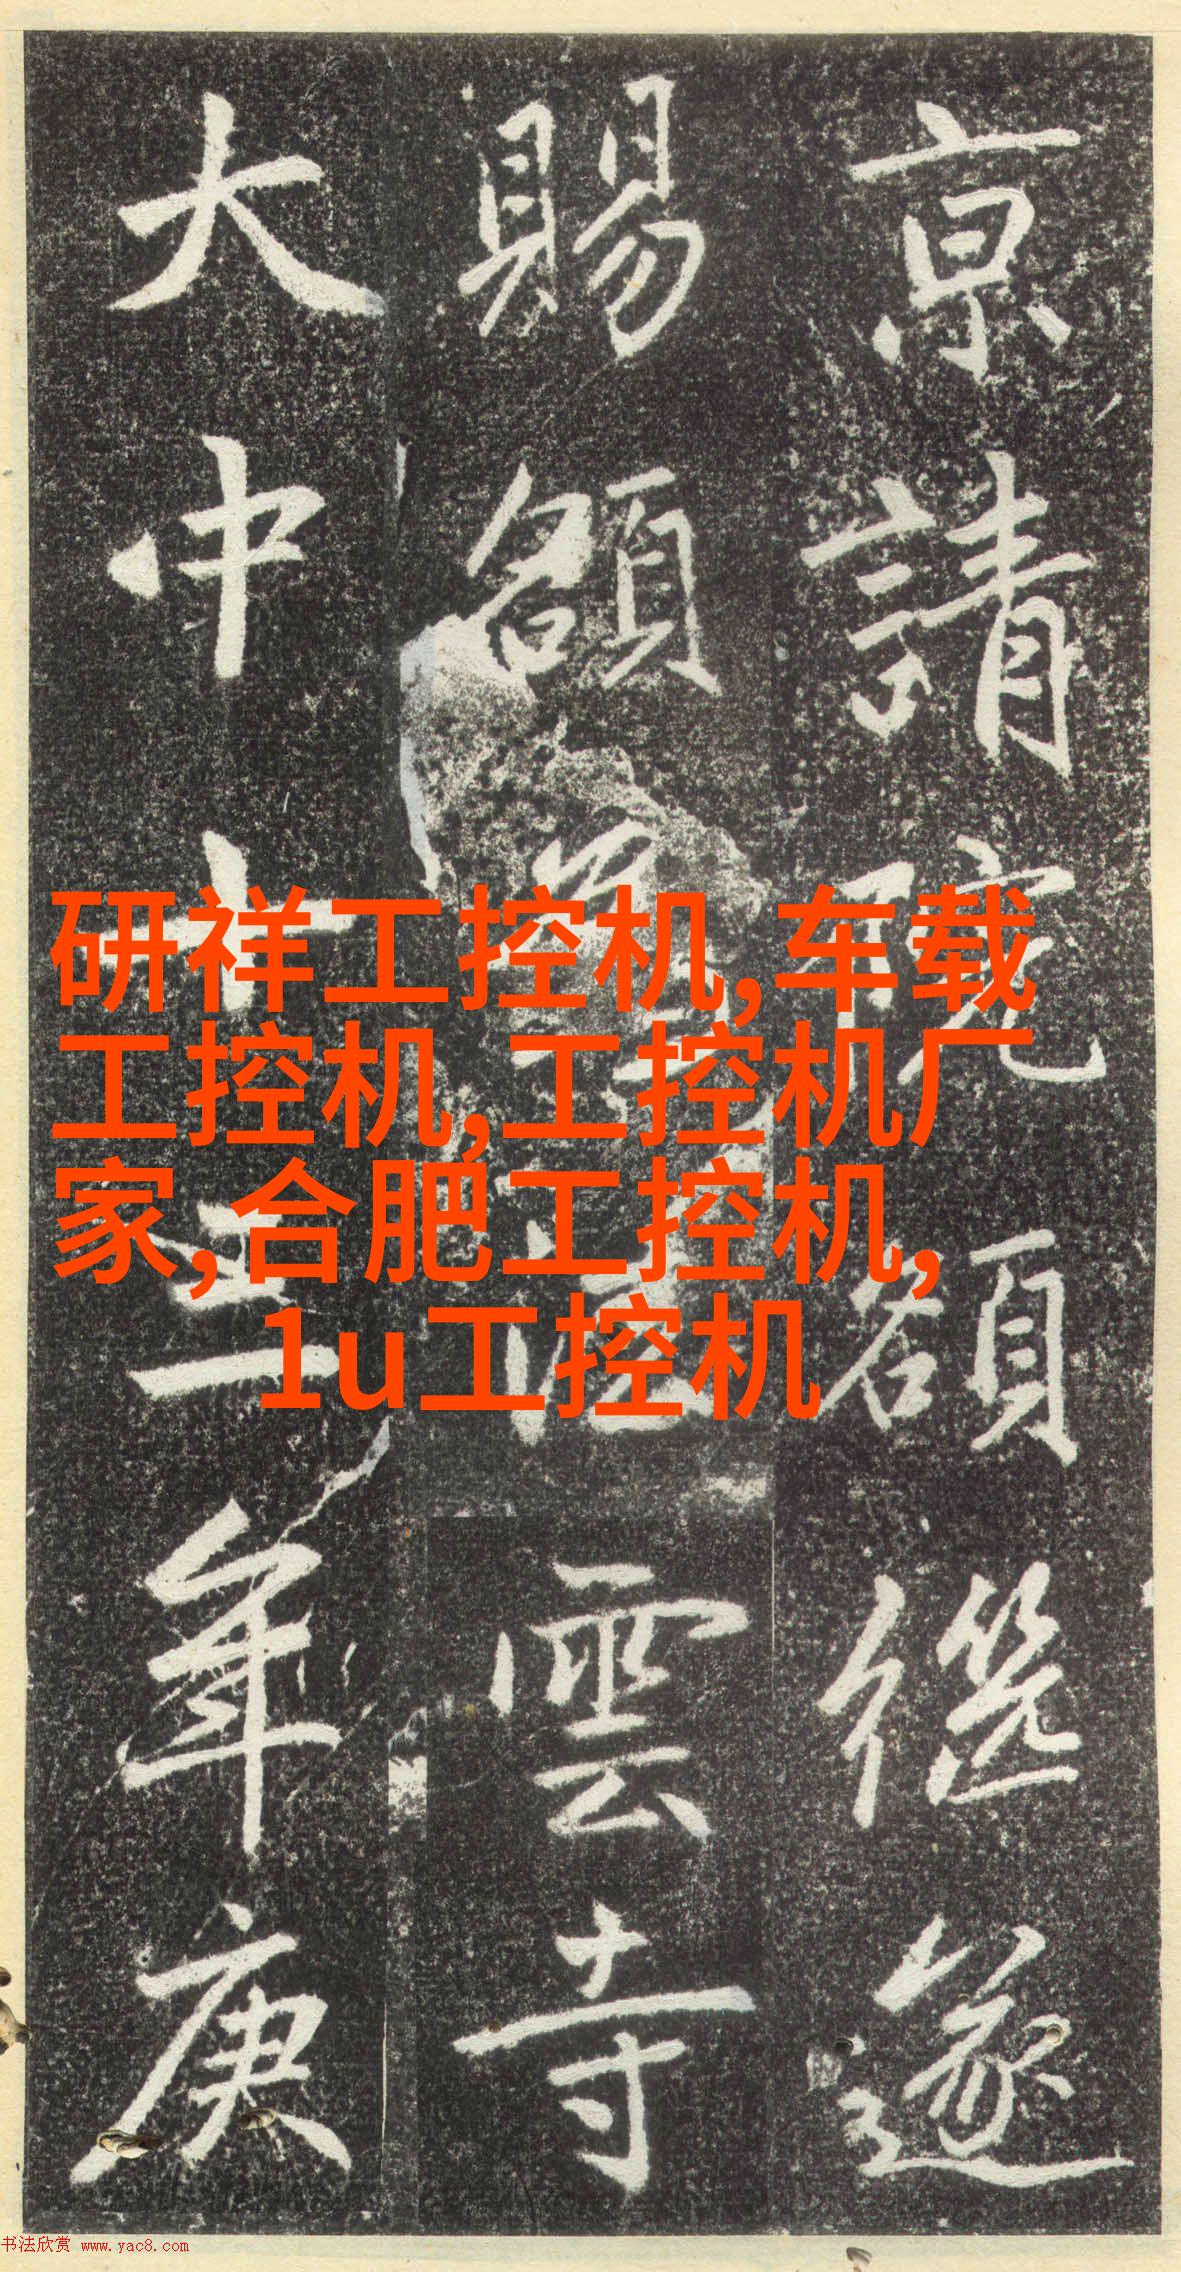 京請院額遂
賜額雲寺
大中十三年庚
研祥工控机,车载
工控机,工控机厂
家,合肥工控机,
1u工控机
书法欣赏 www.yac8.com